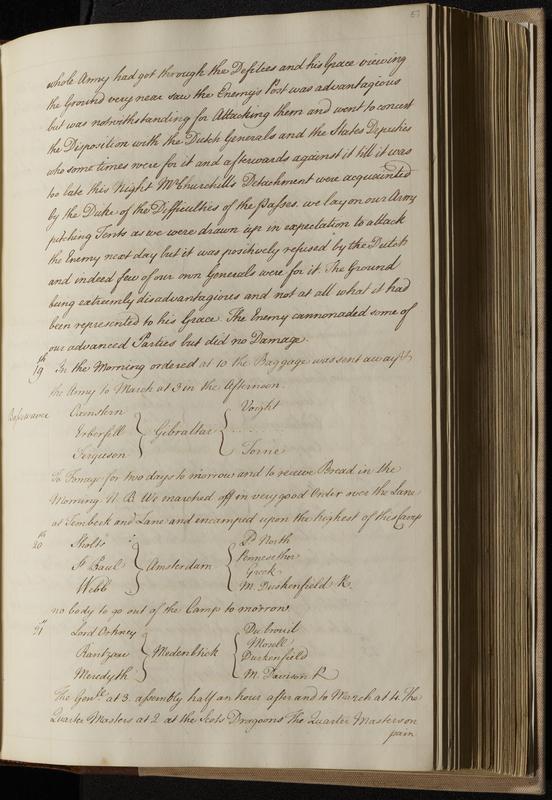 57
whole Army had got through the Defilees and his Grace viewing
the Ground very near saw the Enemy's Post was advantagious
but was notwithstanding for Attacking them and went to concert
the Disposition with the Dutch Generals and the States Deputies
who some times were for it and afterwards against it till it was
too late this Night Mr. Churchills Detachment were acquainted
by the Duke of the Difficulties of the passes. we lay on our Army
pitching Tents as we were drawn up in expectation to attack
the Enemy next day but it was positively refused by the Dutch
and indeed few of our own Generals were for it. The Ground
being extremly disadvantagious and not at all what it had
been represented to his Grace. The Enemy cannonaded some of
our advanced Parties but did no Damage.
19th In the Morning ordered at 10 the Baggage was sent away &
the Army to March at 3 in the Afternoon.
Oxenstern Voight
Erberfill Gibraltar
Ferguson Torné
To Forage for two days to morrow and to receive Bread in the
Morning N. B. We marched off in very good Order over the Lane
at Tembeck and Lane and encamped upon the highest of this Camp
20th Sholts Pd. North
St. Paul Amsterdam Pennesether
Grook
Webb M. Duskenfield R.
no body to go out of the Camp to morrow
21st Lord Orkney Du brouil
Rantzau Medenblick Morell
Durkenfield
Meredyth M. Dawson R
The Genle. at 3 assembly half an hour after and to March at 4. The
Quarter Masters at 2 at the Scots Dragoons The Quarter Masters on
pain